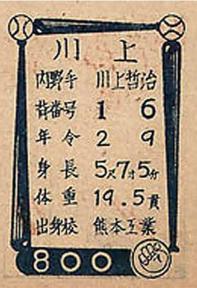 川上
内野手 川上哲治
背番号 16
年令 29
身長 5尺7寸5分
体重 19.5貫
出身校 熊本工業
800